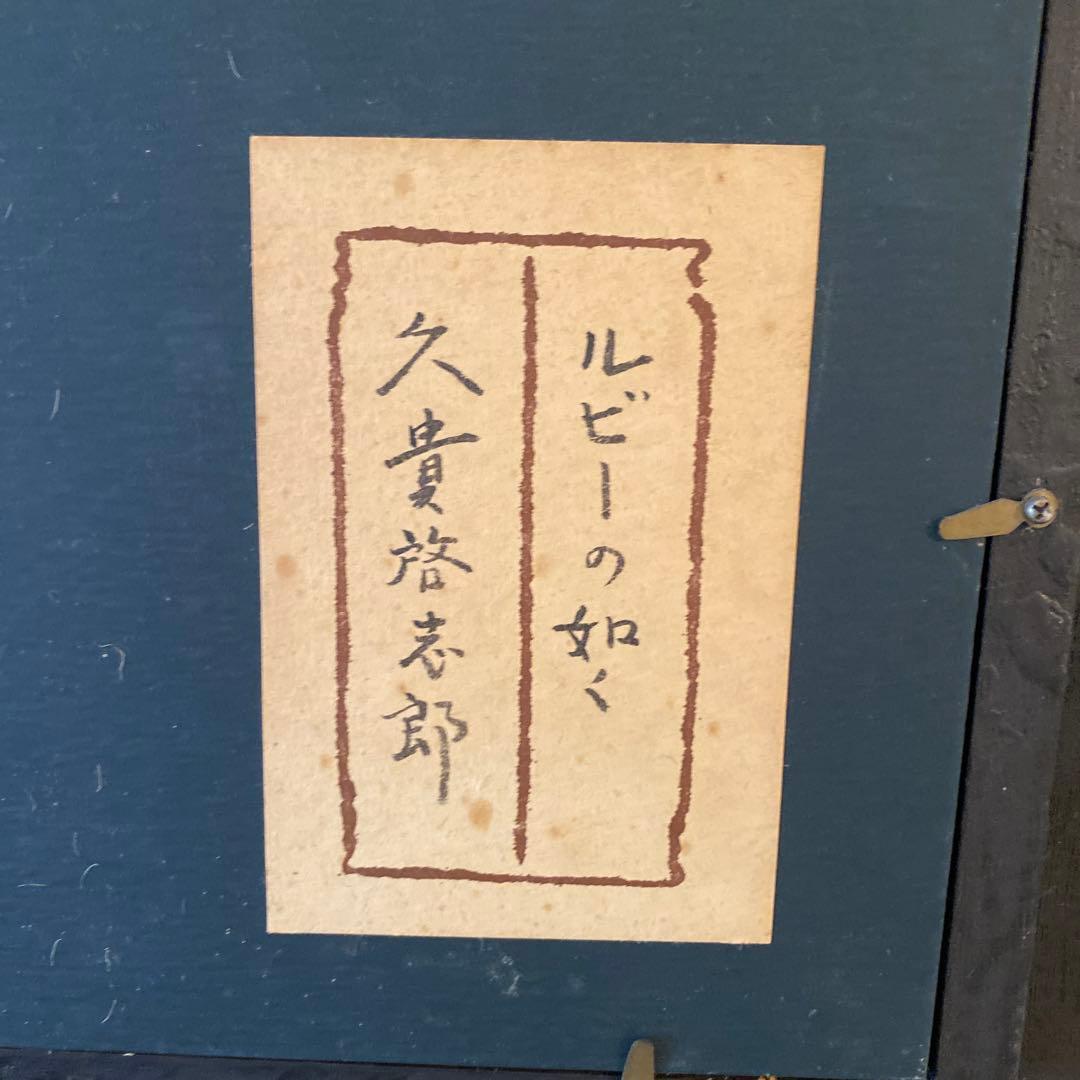 ルビーの如く
久貴啓志郎